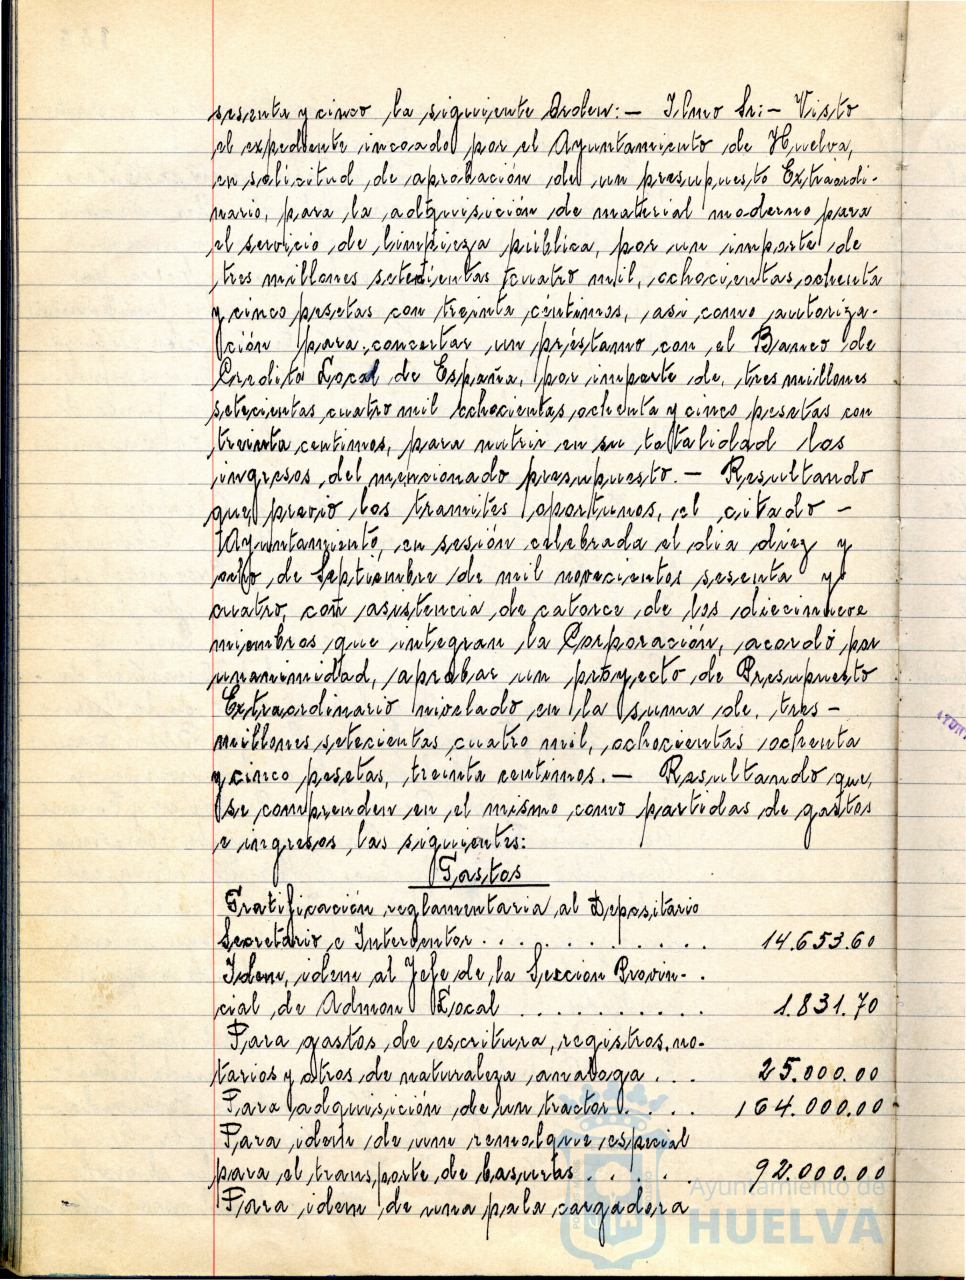 sesenta y cinco la siguiente Orden:— Ilmo Sr:— Visto
el expediente incoado por el Ayuntamiento de Huelva,
en solicitud de aprobación de un presupuesto Extraordi-
nario, para la adquisición de material moderno para
el servicio de limpieza pública, por un importe de
tres millones setecientas cuatro mil, ochocientas, ochenta
y cinco pesetas con treinta céntimos, asi como autoriza-
ción para concertar un préstamo con el Banco de
Credito Local de España, por importe de, tres millones
setecientas cuatro mil ochocientas, ochenta y cinco pesetas con
treinta centimos, para nutrir en su totalidad los
ingresos del mencionado presupuesto.— Resultando
que, previo los tramites oportunos, el citado —
Ayuntamiento, en sesión celebrada el dia diez y
ocho de Septiembre de mil novecientos sesenta y
cuatro, con asistencia de catorce de los diecinueve
miembros que integran la Corporación, acordó por
unanimidad, aprobar un proyecto de Presupuesto
Extraordinario nivelado en la suma de, tres —
millones setecientas cuatro mil, ochocientas ochenta
y cinco pesetas, treinta centimos.— Resultando que,
se comprenden en el mismo como partidas de gastos
e ingresos, las siguientes:
Gastos
Gratificación reglamentaria, al Depositario
Secretario e Interventor . . . . . . . . . . . 14.653.60
Idem, idem al Jefe de la Sección Provin- .
cial de Admon Local . . . . . . . . . . 1.831.70
Para gastos de escritura, registros, no-
tarios y otros de naturaleza analoga . . . 25.000.00
Para adquisición de un tractor . . . . 164.000.00
Para idem de un remolque especial
para el transporte de basuras . . . . . 92.000.00
Para idem de una pala cargadora
Ayuntamiento de
HUELVA